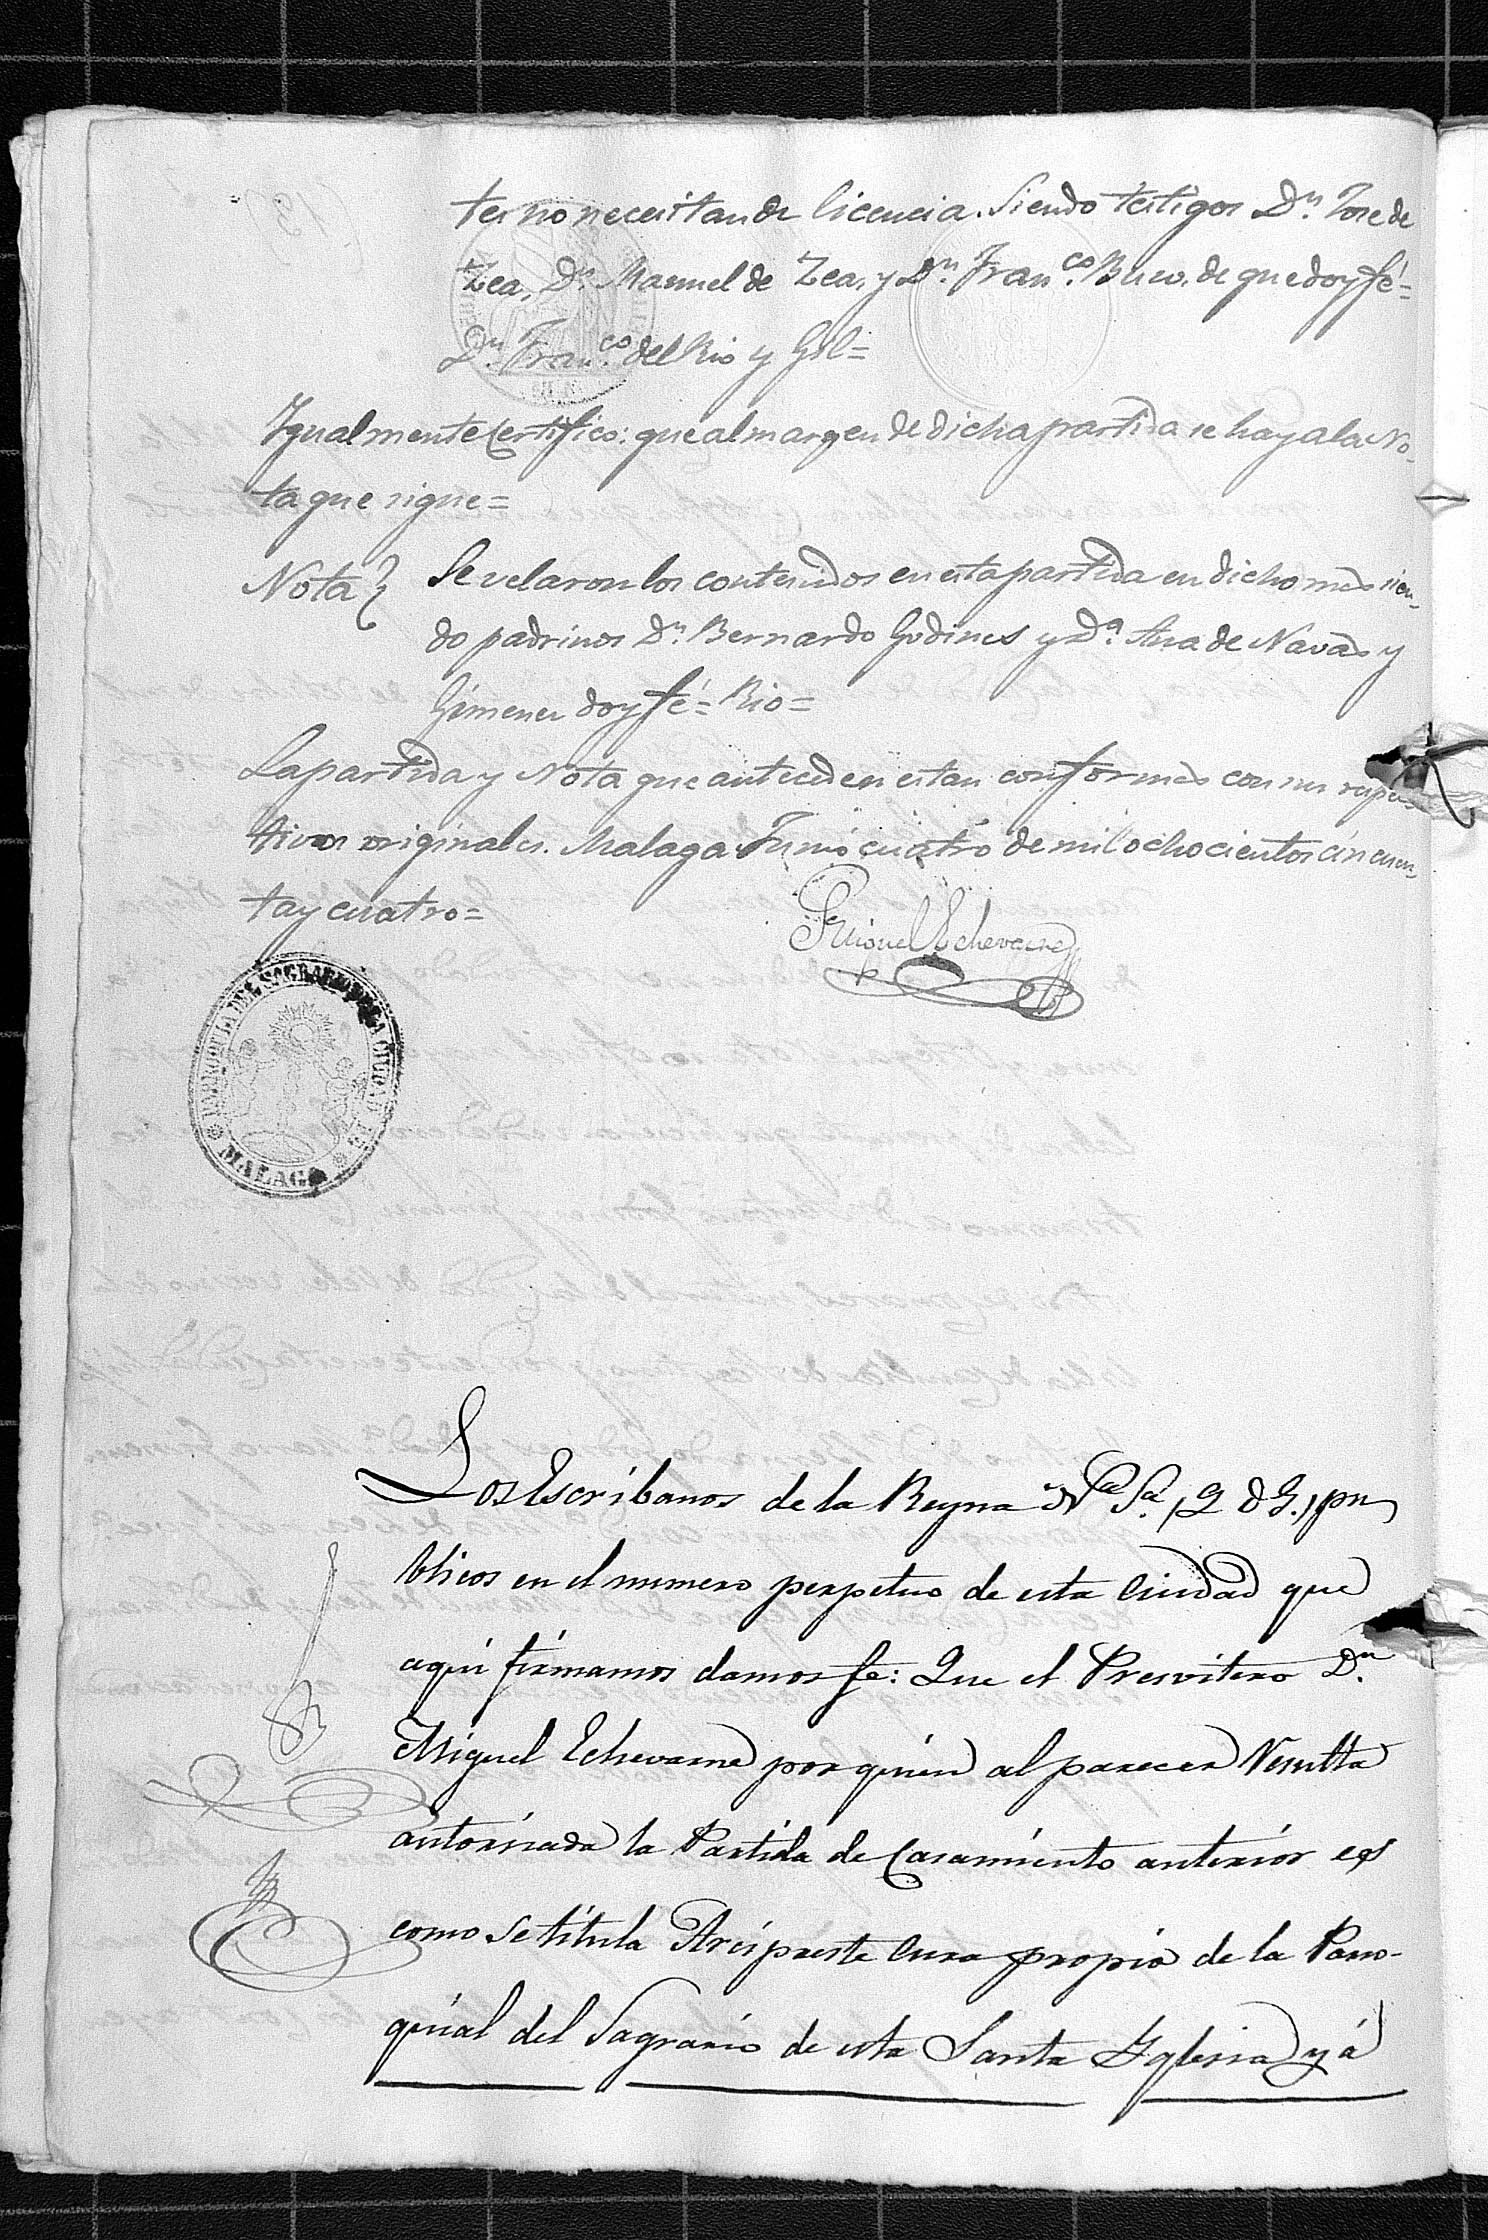 tes no necesitan de licencia. Siendo testigos Dn. Jose de
Zea, Dn. Manuel de Zea, y Dn. Franco. de que doy fé=
Dn. Franco. del Rio y Gil=
Igualmente Certifico: que al margen de dicha partida se haya la No-
ta que sigue=
Nota} Se velaron los contenidos en esta partida en dicho mes sien-
do padrinos Dn. Bernardo Godines y Da. Ana de Navas y
Gimenez doy fé= Rio=
La partida y Nota que anteceden estan conformes con sus respec-
tivos originales. Malaga Junio cuatro de mil ochocientos cincuen-
ta y cuatro=
Miguel Echevarne
PARROQUIA DEL SAGRARIO DE LA CIUDAD DE
MALAGA
Los Escribanos de la Reyna Na. Sa. (Q D G.) pu
blicos en el numero perpetuo de esta Ciudad que
aqui firmamos damos fe: Que el Presvitero Dn.
Miguel Echevarne por quien al parecer Resulta
autorizada la Partida de Casamiento anterior es
como se titula Arcipreste Cura propio de la Parro-
quial del Sagrario de esta Santa Yglesia y á